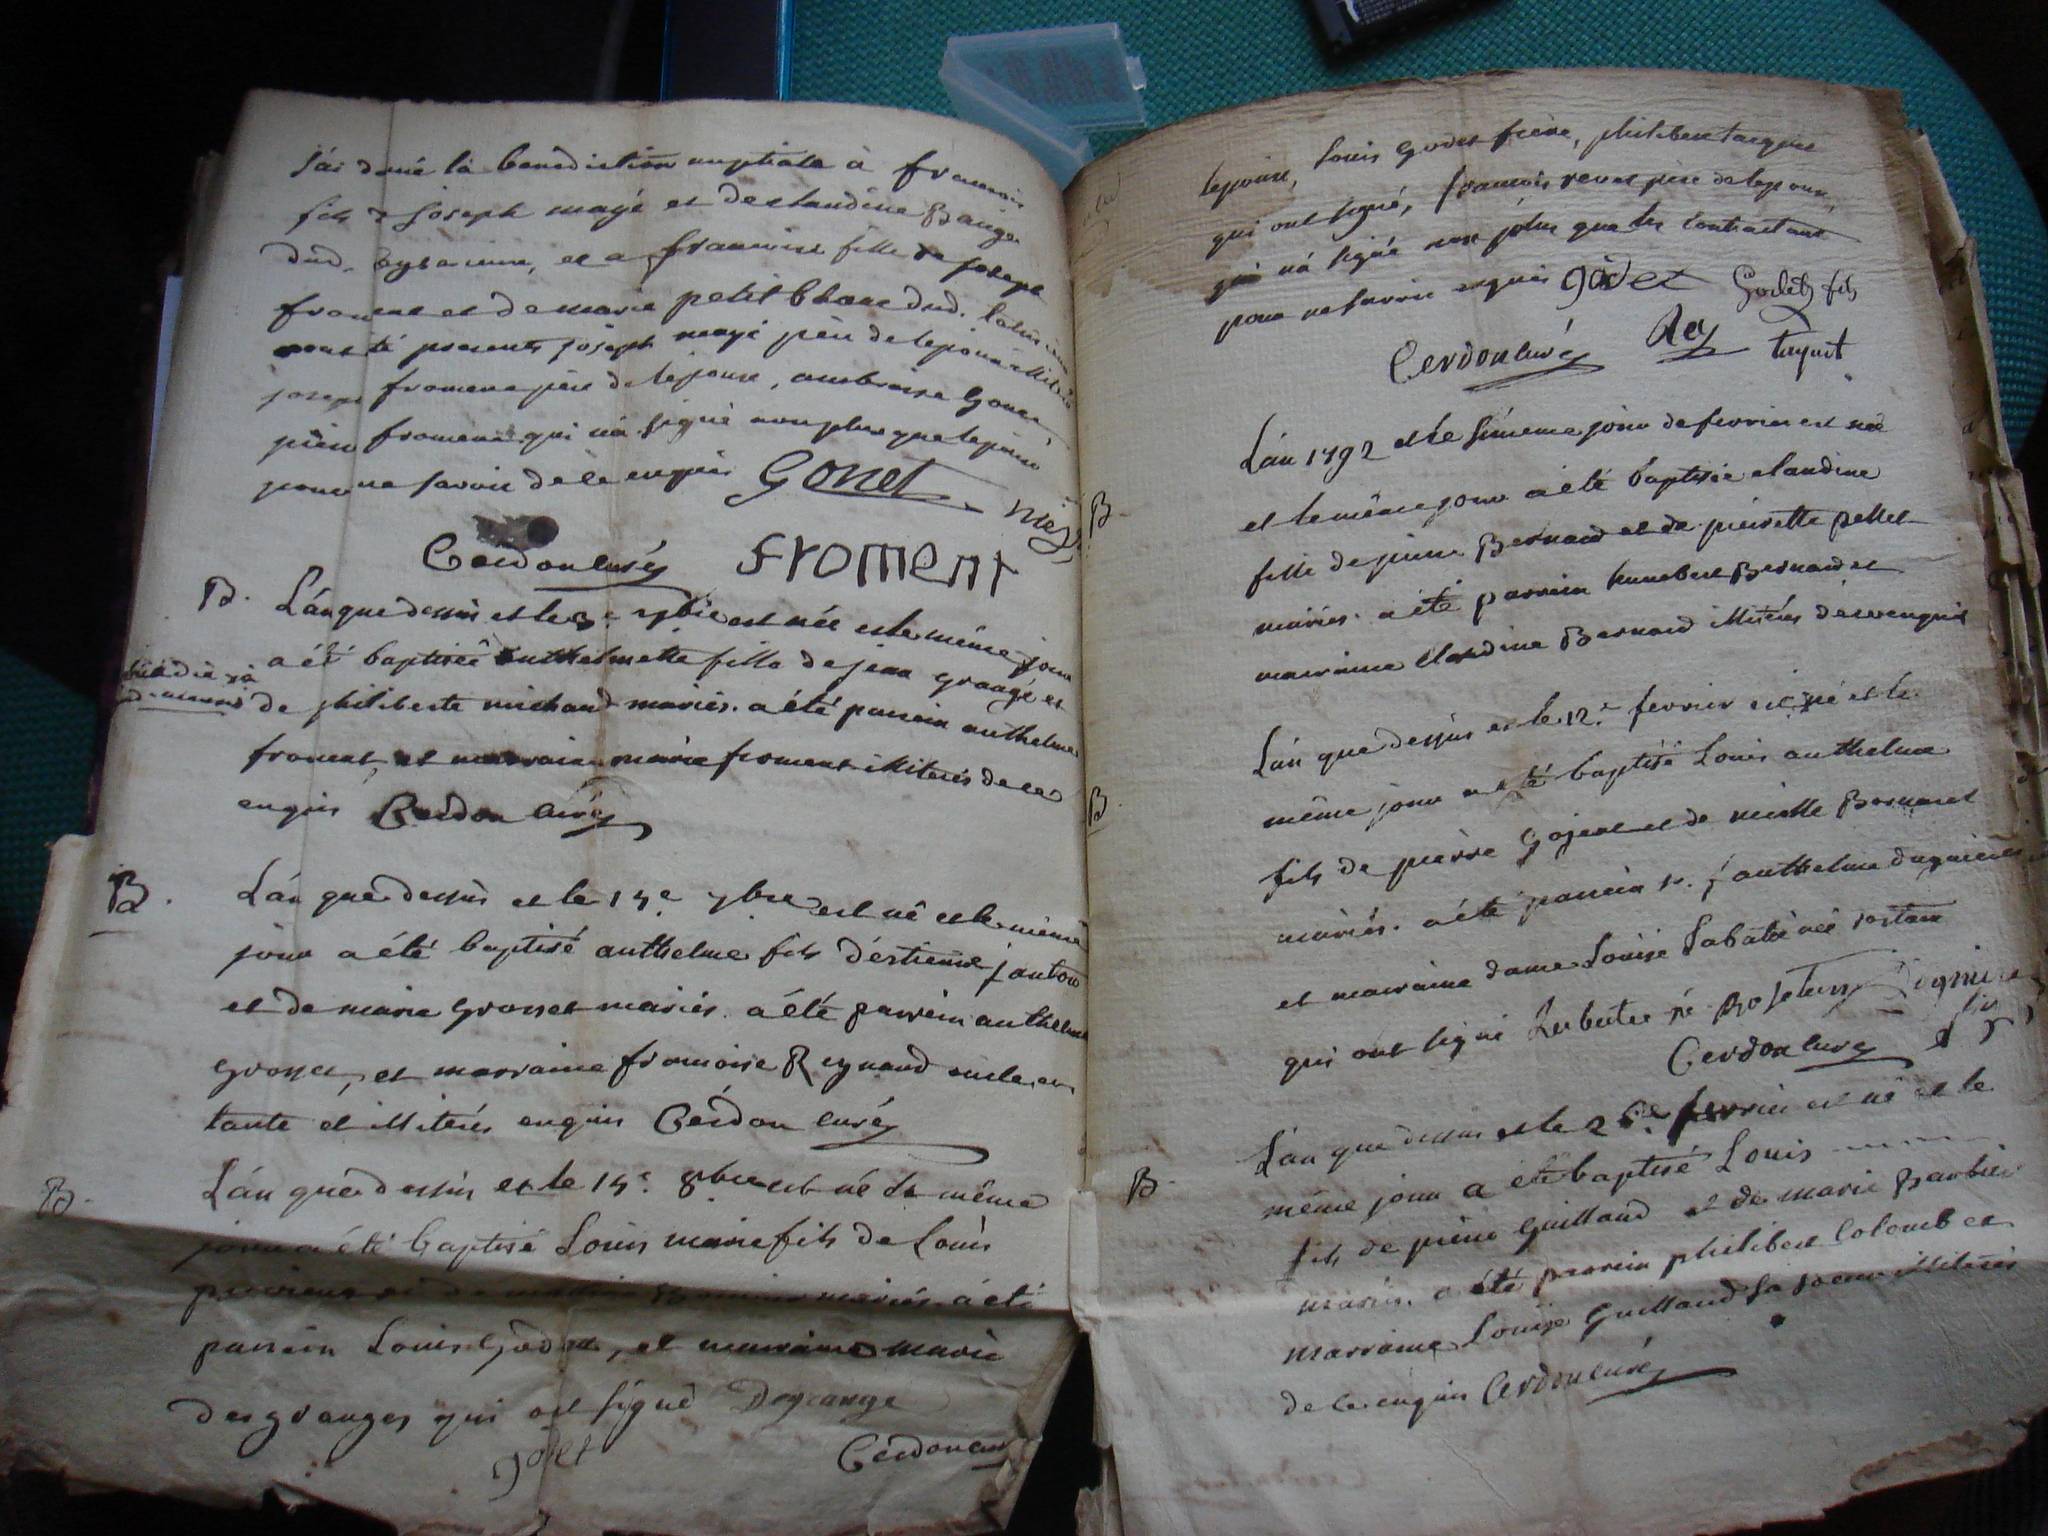 j'ai doné la bénédiction nuptiale à francois
fils d joseph mayé et de claudine
et a francoise fille de joseph
froment et de marie petit blanc dud.
presents joseph mayé père de lepoux
joseph froment père de lepouse, ambroise Gonet
froment qui n'a signé non plus que lepoux
pour ne savoir de ce enquis Gonet
Cerdon curé froment
B. L'an que dessus et le 3e 7bre est née et le même jour
a été baptisée anthelmette fille de jean grangé et
de philiberte michaud mariés. a été parrein anthelme
froment, et marraine marie froment illiterés de ce
enquis Cerdon curé
B. L'an que dessus et le 14e 7bre est né et le même
jour a été baptisé anthelme fils d'estienne janton
et de marie grosset mariés. a été parrein anthelme
grosset, et marraine francoise Reynaud oncle et
tante et illiterés enquis Cerdon curé
B. L'an que dessus et le 14e 8bre est né le même
jour a été baptisé Louis marie fils de Louis
mariés. a été
parrein Louis Godet, et marraine marie
desgranges qui ont signé Degrange
godet Cerdon curé
lepouse, Louis Godet frère, philibert taquet
qui ont signé, francois revet père de lepoux,
qui n'a signé non plus que les contractans
pour ne savoir enquis godet Godet fils
Cerdon curé Rey taquet
L'an 1792 et le sixieme jour de fevrier est née
B et le même jour a été baptisée claudine
fille de pierre Bernard et de pierrette pellet
mariés. a été parrein humbert Bernard et
marraine claudine Bernard illiterés de ce enquis
L'an que dessus et le 12e fevrier est né et le
B même jour a été baptisé Louis anthelme
fils de pierre Gojent et de Bernard
mariés. a été parrein sr. j anthelme
et marraine dame Louise Sabatié née rostain
qui ont signé
Cerdon curé
L'an que dessus et le 26e fevrier est né et le
B. même jour a été baptisé Louis
fils de pierre Guilland et de marie Barbier
mariés. a été parrein philibert Colomb et
marraine Louise Guilland sa soeur illiterés
de ce enquis Cerdon curé